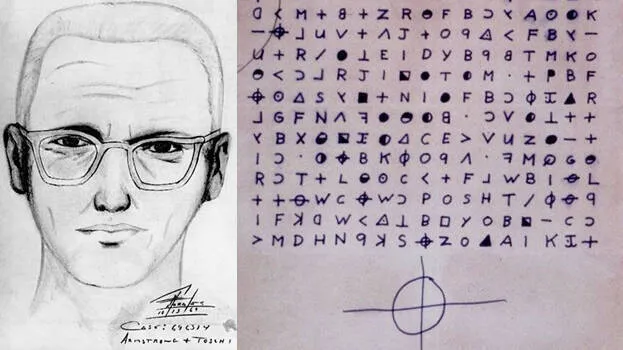 D < M + 8 + Z R ◓ F B Ɔ Y A ⊙ ◐ K
– ⌖ ⅃ U V + Λ J + O 9 Δ < F B Y –
U + R / ● ⊥ E I D Y B 9 8 T M K O
◓ < Ɔ ⅃ R J I ◪ ● T ◓ M · + P B F
⌖ ⊙ Δ S Y ■ + N I ● F B Ɔ Φ I ▲ R
⅃ G F N Λ ꟻ ◓ ◐ 8 · Ɔ V ◐ ⊥ + +
Y B X ◐ ◪ I ◐ Δ C E > V U Z ◓ – +
I Ɔ · ◐ ⌖ B K Φ O 9 Λ · ꟻ M ◓ G ◓
R Ɔ T + L ◓ ⊙ C < + F ⅃ W B I ⊖ L
+ + ⊖ W C ⌖ W Ɔ P O S H T / Φ ⊖ 9
I F K ᗡ W < Δ ⊥ B □ Y O B ◪ – C Ɔ
> M D H N 9 K S ⌖ Z O ▲ A I K I +
CASE: 696314
ARMSTRONG + TOSCHI